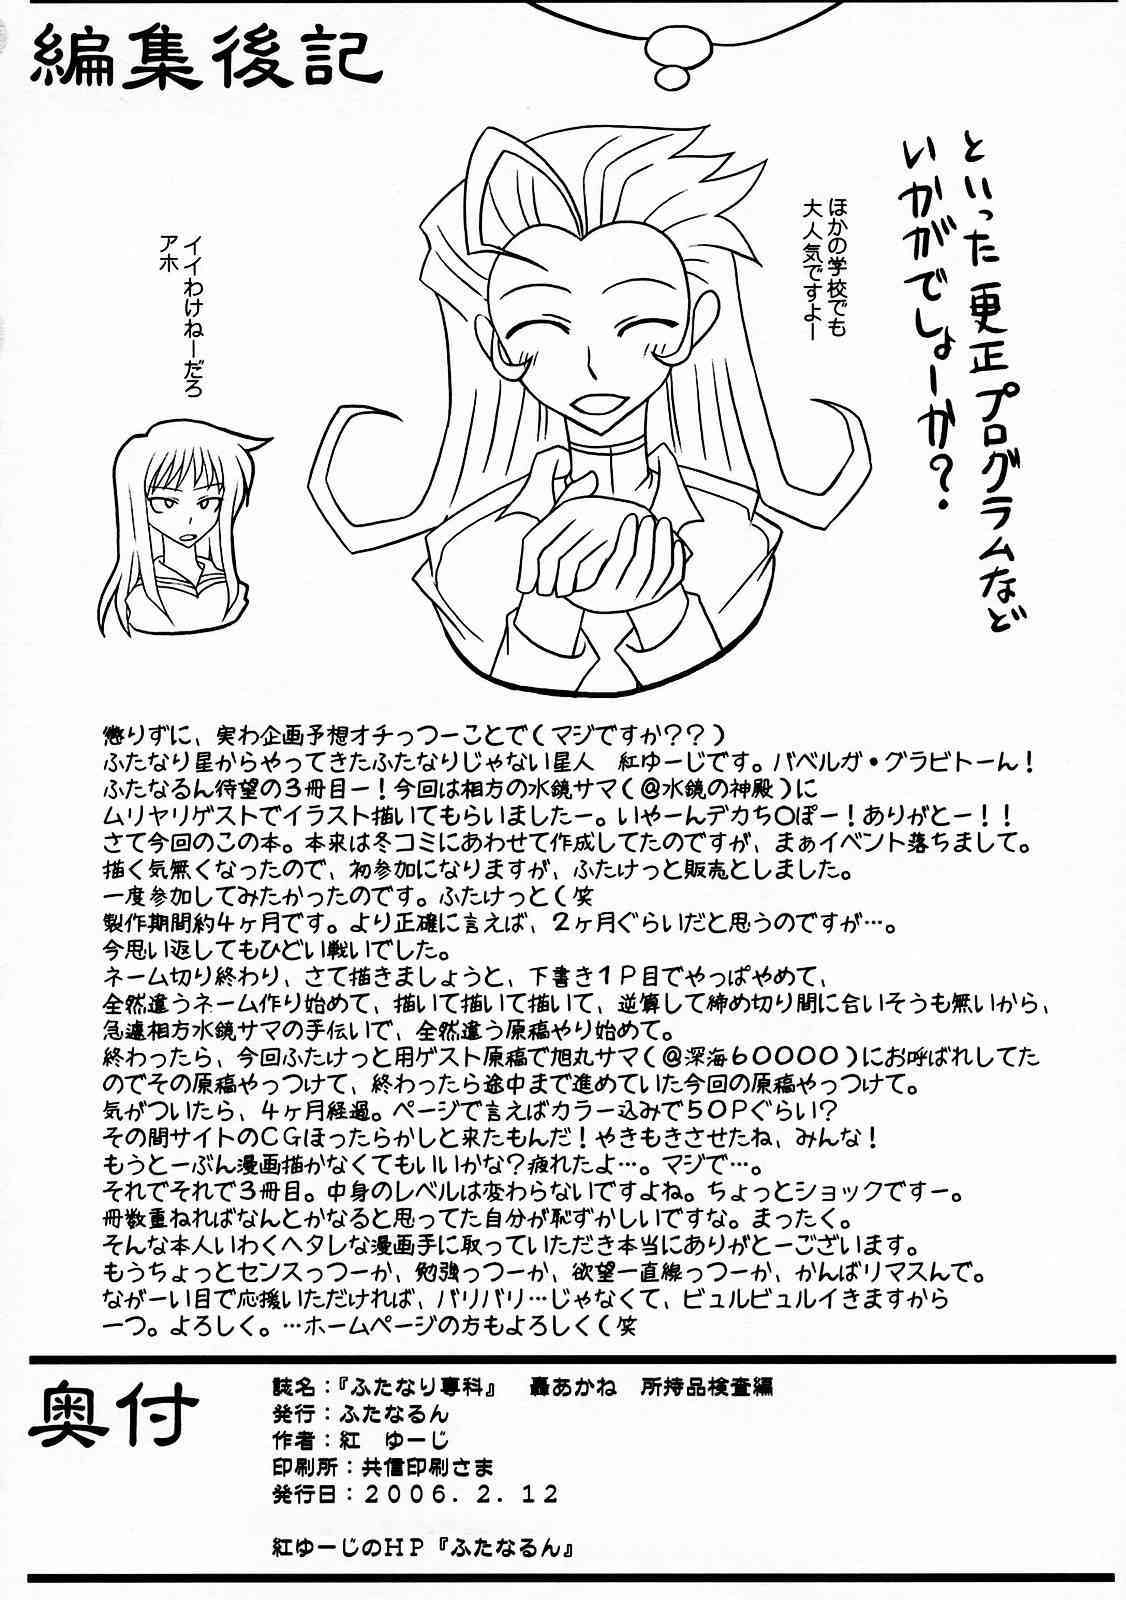 編集後記
といった更正プログラムなど
いかがでしょーか？
ほかの学校でも
大人気ですよー
イイわけねーだろ
アホ
懲りずに、実わ企画予想オチっつーことで（マジですか？？）
ふたなり星からやってきたふたなりじゃない星人　紅ゆーじです。バベルガ・グラビトーん！
ふたなるん待望の３冊目ー！今回は相方の水鏡サマ（＠水鏡の神殿）に
ムリヤリゲストでイラスト描いてもらいましたー。いやーんデカち〇ぽー！ありがとー！！
さて今回のこの本。本来は冬コミにあわせて作成してたのですが、まぁイベント落ちまして。
描く気無くなったので、初参加になりますが、ふたけっと販売としました。
一度参加してみたかったのです。ふたけっと（笑
製作期間約４ヶ月です。より正確に言えば、２ヶ月ぐらいだと思うのですが…。
今思い返してもひどい戦いでした。
ネーム切り終わり、さて描きましょうと、下書き１Ｐ目でやっぱやめて、
全然違うネーム作り始めて、描いて描いて描いて、逆算して締め切り間に合いそうも無いから、
急遽相方水鏡サマの手伝いで、全然違う原稿やり始めて。
終わったら、今回ふたけっと用ゲスト原稿で旭丸サマ（＠深海６００００）にお呼ばれしてた
のでその原稿やっつけて、終わったら途中まで進めていた今回の原稿やっつけて。
気がついたら、４ヶ月経過。ページで言えばカラー込みで５０Ｐぐらい？
その間サイトのＣＧほったらかしと来たもんだ！やきもきさせたね、みんな！
もうとーぶん漫画描かなくてもいいかな？疲れたよ…。マジで…。
それでそれで３冊目。中身のレベルは変わらないですよね。ちょっとショックですー。
冊数重ねればなんとかなると思ってた自分が恥ずかしいですな。まったく。
そんな本人いわくヘタレな漫画手に取っていただき本当にありがとーございます。
もうちょっとセンスっつーか、勉強っつーか、欲望一直線っつーか、かんばリマスんで。
ながーい目で応援いただければ、バリバリ…じゃなくて、ビュルビュルイきますから
一つ。よろしく。…ホームページの方もよろしく（笑
奥付
誌名：『ふたなり専科』　轟あかね　所持品検査編
発行：ふたなるん
作者：紅　ゆーじ
印刷所：共信印刷さま
発行日：２００６．２．１２
紅ゆーじのＨＰ『ふたなるん』